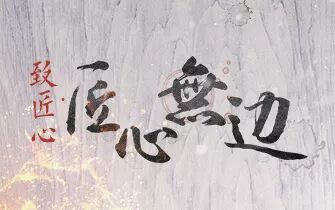 致匠心
匠心無边